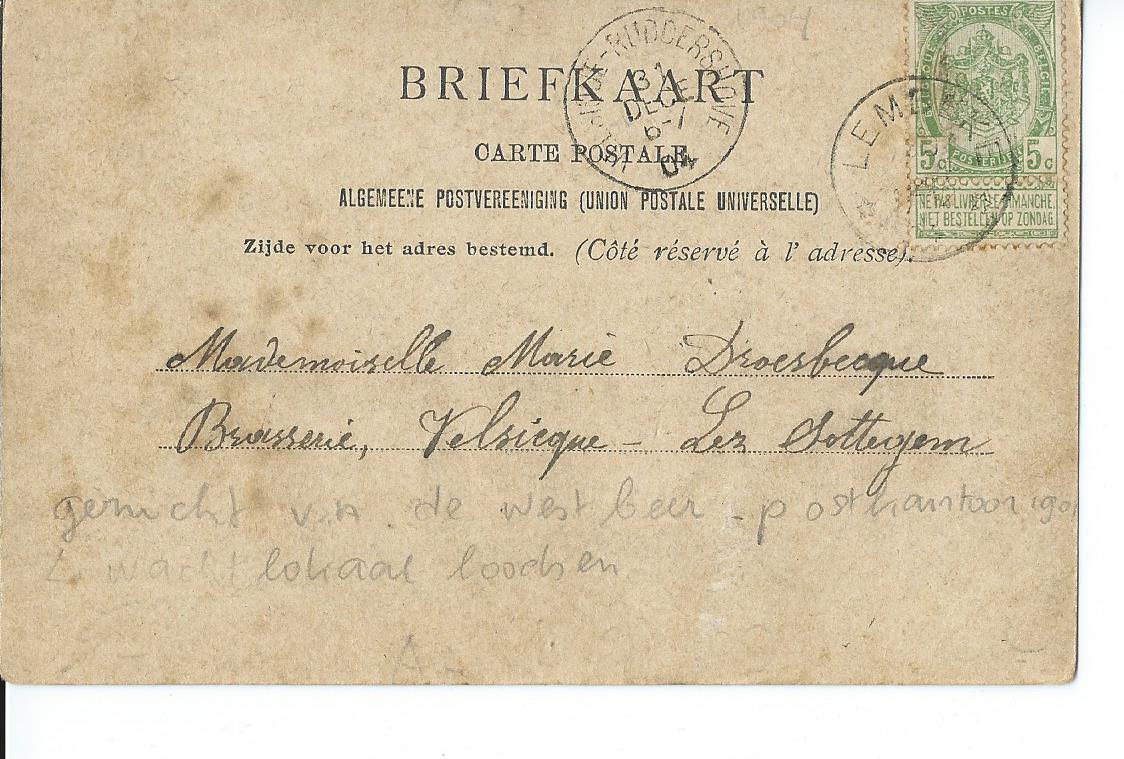 1904
BRIEFKAART
CARTE POSTALE
ALGEMEENE POSTVEREENIGING (UNION POSTALE UNIVERSELLE)
Zijde voor het adres bestemd. (Côté réservé à l'adresse).
RUDDERSHOVE
31
DEC
6-1
04
POSTES
BELGIQUE
BELGIË
5c POSTERIJEN 5c
NE PAS LIVRER LE DIMANCHE.
NIET BESTELLEN OP ZONDAG.
Mademoiselle Marie Droesbecque
Brasserie, Velsicque - Lez Sottegem
gericht v.n. de west beer - postkantoor
wachtlokaal loodsen